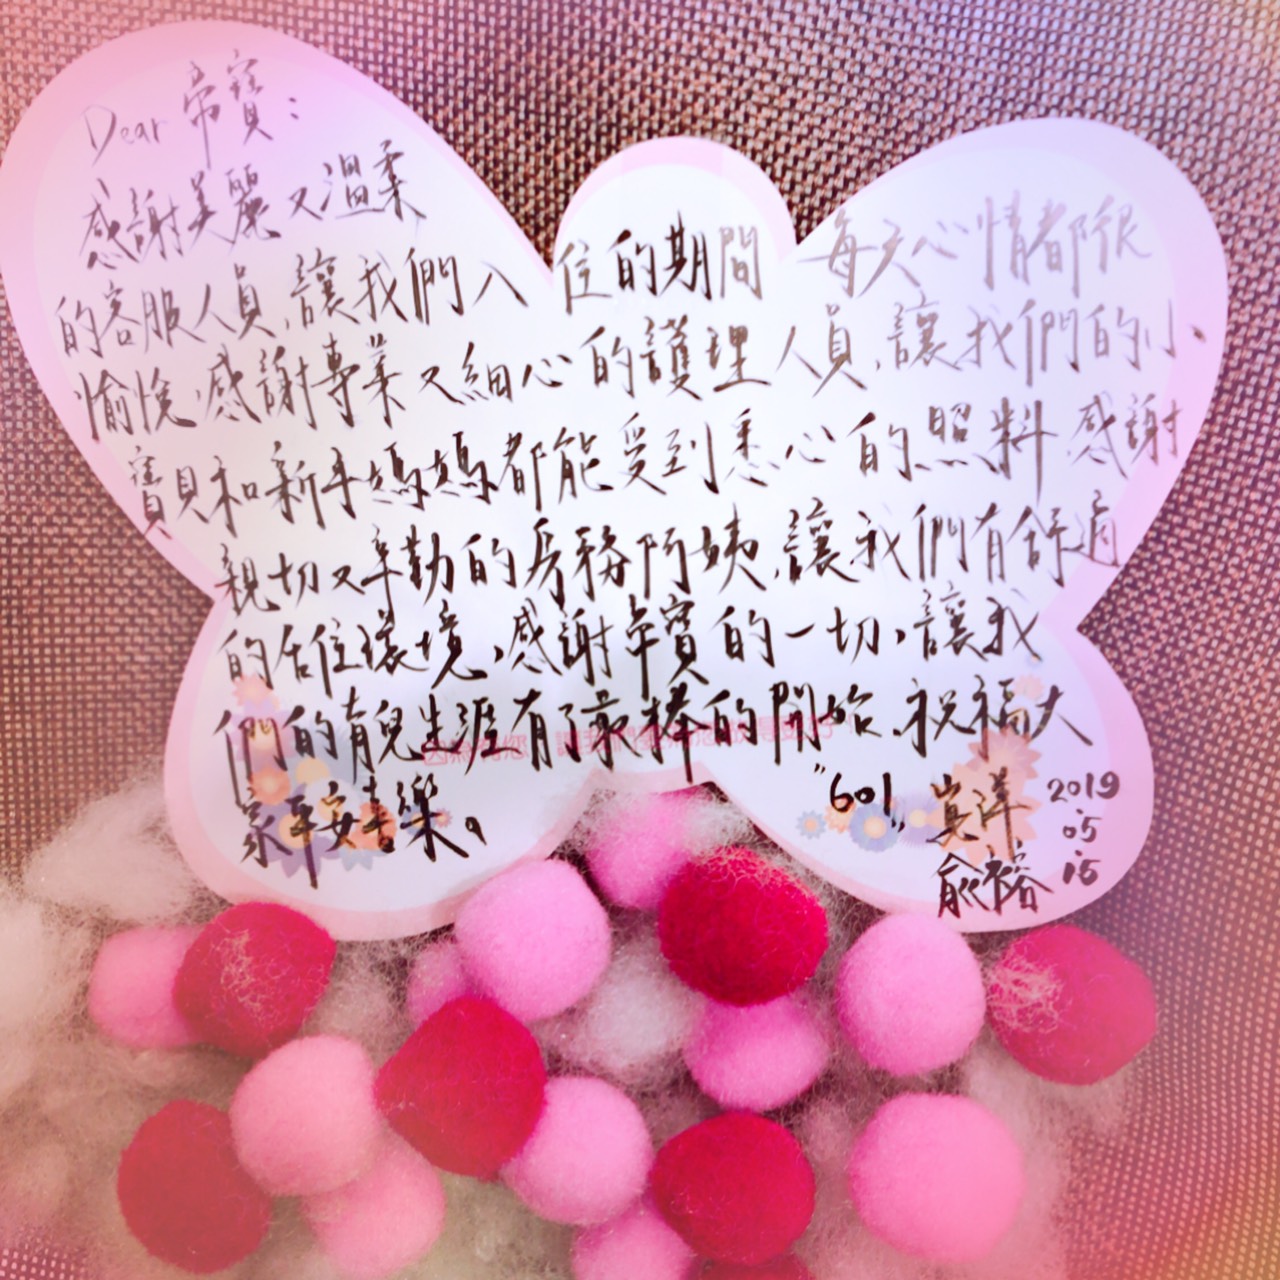 Dear 帝寶:
感謝美麗又溫柔
的客服人員,讓我們入住的期間 每天心情都很
愉悅,感謝專業又細心的護理人員,讓我們的小
寶貝和新手媽媽都能受到悉心的照料.感謝
親切又辛勤的房務阿姨,讓我們有舒適
的居住環境,感謝帝寶的一切,讓我
們的育兒生涯有了最棒的開始.祝福大
家平安喜樂。
"601" 崑洋 2019
.05
俞蓉 .15